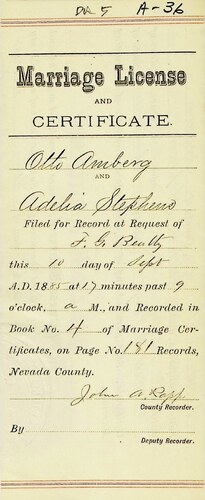 DR 5 A-36
Marriage License
AND
CERTIFICATE.
Otto Amberg
AND
Adelia Stephens
Filed for Record at Request of
F. G. Beatty
this 10 day of Sept
A.D. 1885 at 17 minutes past 9
o'clock, a M., and Recorded in
Book No. 4 of Marriage Cer-
tificates, on Page No. 181 Records,
Nevada County.
John A. Rapp
County Recorder.
By
Deputy Recorder.